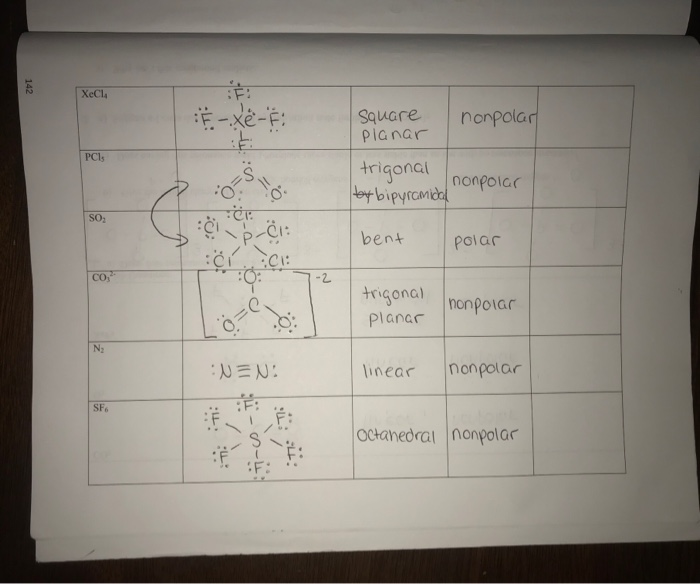 142
XeCl₄
:F:
:F-Xe-F:
:F:
square
planar
nonpolar
PCl₅
S
:O: O:
trigonal
by bipyramidal
nonpolar
SO₂
:Cl:
:Cl P Cl:
:Cl :Cl:
bent
polar
CO₃²⁻
:O:
C
:O: O:
-2
trigonal
planar
nonpolar
N₂
:N≡N:
linear
nonpolar
SF₆
:F:
:F F:
S
:F F:
:F:
octahedral
nonpolar